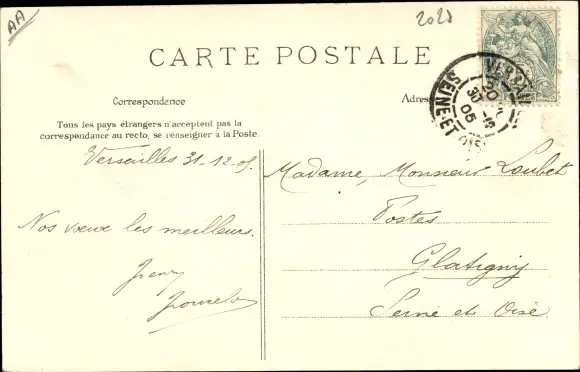 AA
CARTE POSTALE
Correspondence
Adres
Tous les pays étrangers n'acceptent pas la
correspondance au recto, se renseigner à la Poste.
VERSAIL
SEINE-ET-OISE
20
30
05
Versailles 31-12-05
Nos vœux les meilleurs.
Madame, Monsieur Loubet
Postes
Glatigny
Seine et Oise